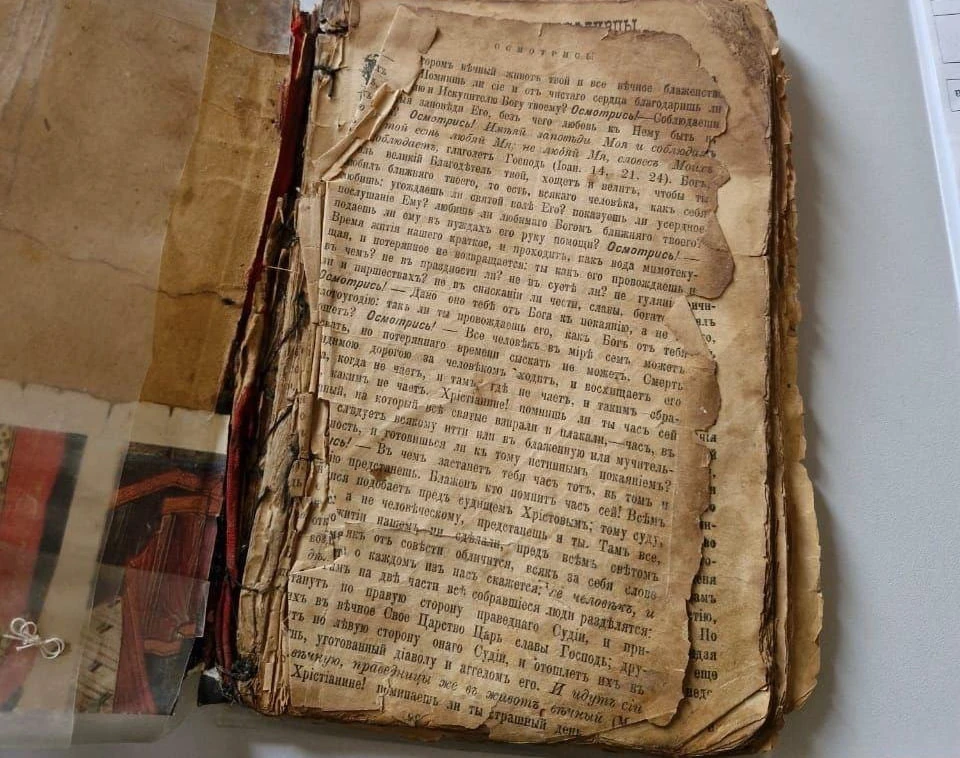 ОСМОТРИСЬ
торомъ вѣчный животъ твой и все вѣчное блаженств
Помнишь ли сіе и отъ чистаго сердца благодаришь ли
ю и Искупителю Богу твоему? Осмотрись!—Соблюдаеши
я заповѣди Его, безъ чего любовь къ Нему быть н
Осмотрись! Имѣяй заповѣди Моя и соблюдая
той есть любяй Мя; не любяй Мя, словесъ Моихъ
облюдаетъ, глаголетъ Господь (Іоан. 14, 21. 24). Богъ,
ль великій Благодѣтель твой, хощетъ и велитъ, чтобы ты
любилъ ближняго твоего, то есть, всякаго человѣка, какъ себя
любишь; угождаешь ли святой волѣ Его? показуешь ли усердное
послушаніе Ему? любишь ли любимаго Богомъ ближняго твоего?
подаешь ли ему въ нуждахъ его руку помощи? Осмотрись! —
Время житія нашего краткое, и проходитъ, какъ вода мимотеку-
щая, и потерянное не возвращается: ты какъ его провождаешь и
въ чемъ? не въ праздности ли? не въ суетѣ ли? не гуляні
ли и пиршествахъ? не въ снисканіи ли чести, славы, богат
Осмотрись! — Дано оно тебѣ отъ Бога къ покаянію, а не
лотоугодію: такъ ли ты провождаешь его, какъ Богъ отъ тебя
щетъ? Осмотрись! — Все человѣкъ въ мірѣ семъ можетъ
вать, но потеряннаго времени сыскать не можетъ. Смерть
димою дорогою за человѣкомъ ходитъ, и восхищаетъ его
а, когда не чаетъ, и тамъ, гдѣ не чаетъ, и такимъ обра-
какимъ не чаетъ. Христіанине! помнишь ли ты часъ сей
ный, на который всѣ святые взирали и плакали,—часъ, въ
слѣдуетъ всякому итти или въ блаженную или мучитель-
ность, и готовишься ли къ тому истиннымъ покаяніемъ?
ись! — Въ чемъ застанетъ тебя часъ тотъ, въ томъ и
предстанешь. Блаженъ кто помнитъ часъ сей! Всѣмъ
ся подобаетъ предъ судищемъ Христовымъ; тому суду,
а не человѣческому, предстанешь я ты. Тамъ все,
житіи нашемъ ли сдѣлали, предъ всѣмъ свѣтомъ
якъ отъ совѣсти обличится, всякъ за себя слово
о каждомъ изъ насъ скажется: не человѣкъ, и
амъ на двѣ части всѣ собравшіеся люди раздѣлятся:
танутъ по правую сторону праведнаго Судіи, и при-
ихъ въ вѣчное Свое Царство Царь славы Господь; дру-
тъ по лѣвую сторону онаго Судіи, и отошлетъ ихъ въ
нь, уготованный діаволу и аггеломъ его. И идутъ сіи
вѣчную, праведницы же въ животъ вѣчный
Христіанине! поминаешь ли ты страшный день